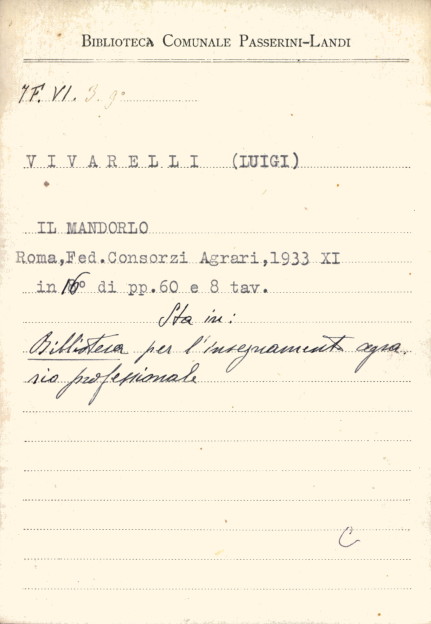 BIBLIOTECA COMUNALE PASSERINI-LANDI
7F. VI. 3. 9º
VIVARELLI (LUIGI)
IL MANDORLO
Roma,Fed.Consorzi Agrari,1933 XI
in 16º di pp.60 e 8 tav.
Sta in:
Biblioteca per l'insegnamento agra-
rio professionale
C